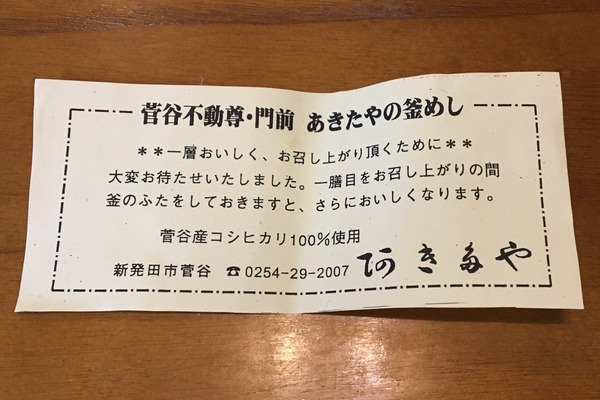 菅谷不動尊・門前 あきたやの釜めし
**一層おいしく、お召し上がり頂くために**
大変お待たせいたしました。一膳目をお召し上がりの間
釜のふたをしておきますと、さらにおいしくなります。
菅谷産コシヒカリ100%使用
新発田市菅谷 ☎0254-29-2007 あきたや